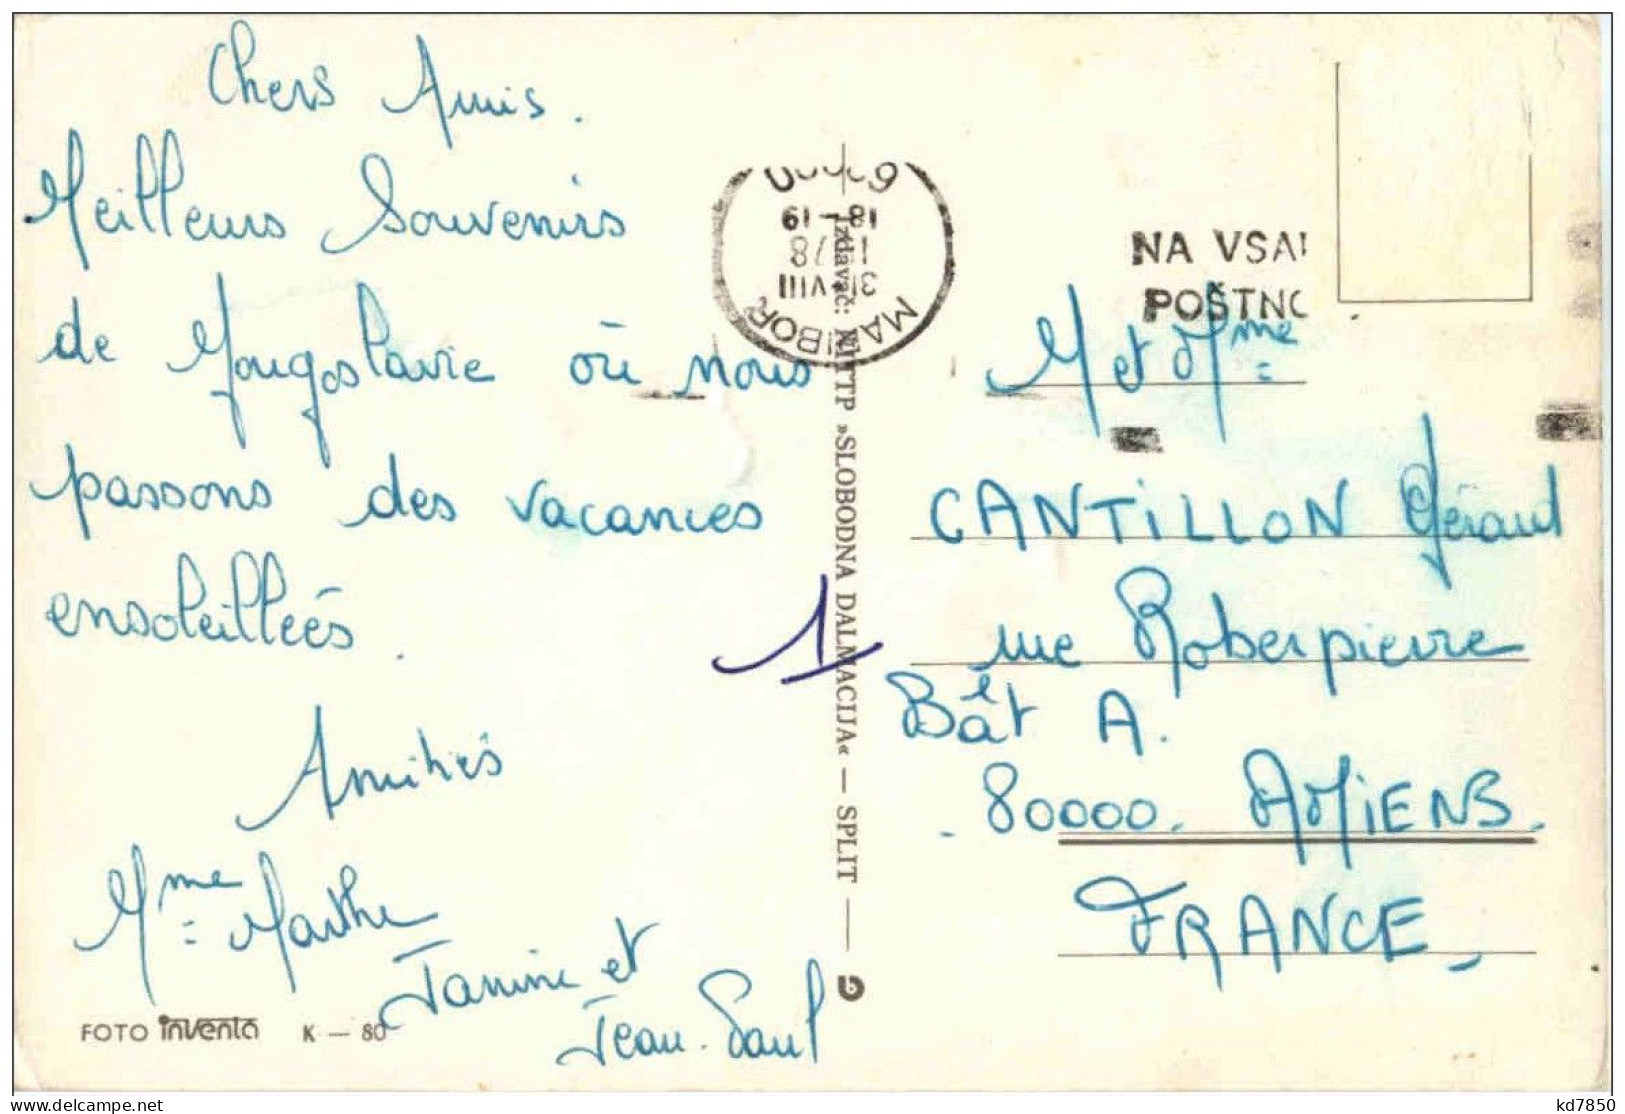 Chers Amis.
Meilleurs Souvenirs
de Yougoslavie où nous
passons des vacances
ensoleillées.
Amitiés
Mme Marthe
Janine et
Jean-Paul
FOTO inventa K — 80
MARIBOR
31 VIII
1 78
18-19
Izdavač: NITTP »SLOBODNA DALMACIJA« — SPLIT —
1
NA VSA
POŠTNO
M et Mme
CANTILLON Gérard
rue Roberpierre
Bât A.
80000. AMIENS.
FRANCE
kd7850